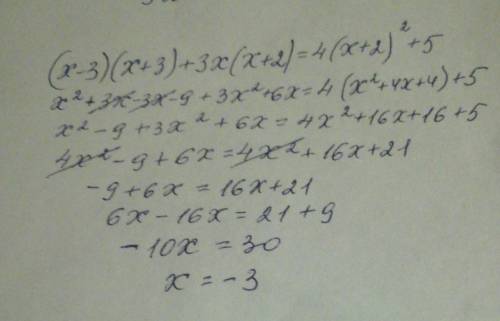 (x-3)(x+3)+3x(x+2)=4(x+2)²+5
x²+3x-3x-9+3x²+6x=4(x²+4x+4)+5
x²-9+3x²+6x=4x²+16x+16+5
4x²-9+6x=4x²+16x+21
-9+6x=16x+21
6x-16x=21+9
-10x=30
x=-3